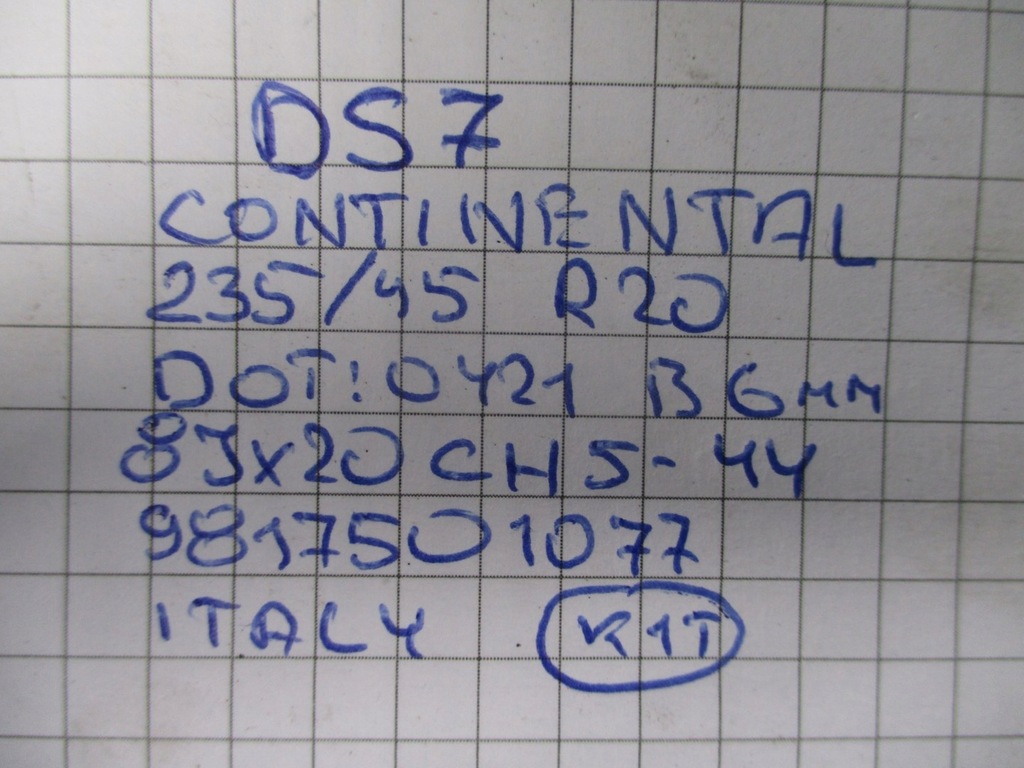 DS7
CONTINENTAL
235/45 R20
DOT: 0421 B 6mm
8Jx20 CH 5-44
9817501077
ITALY K1T